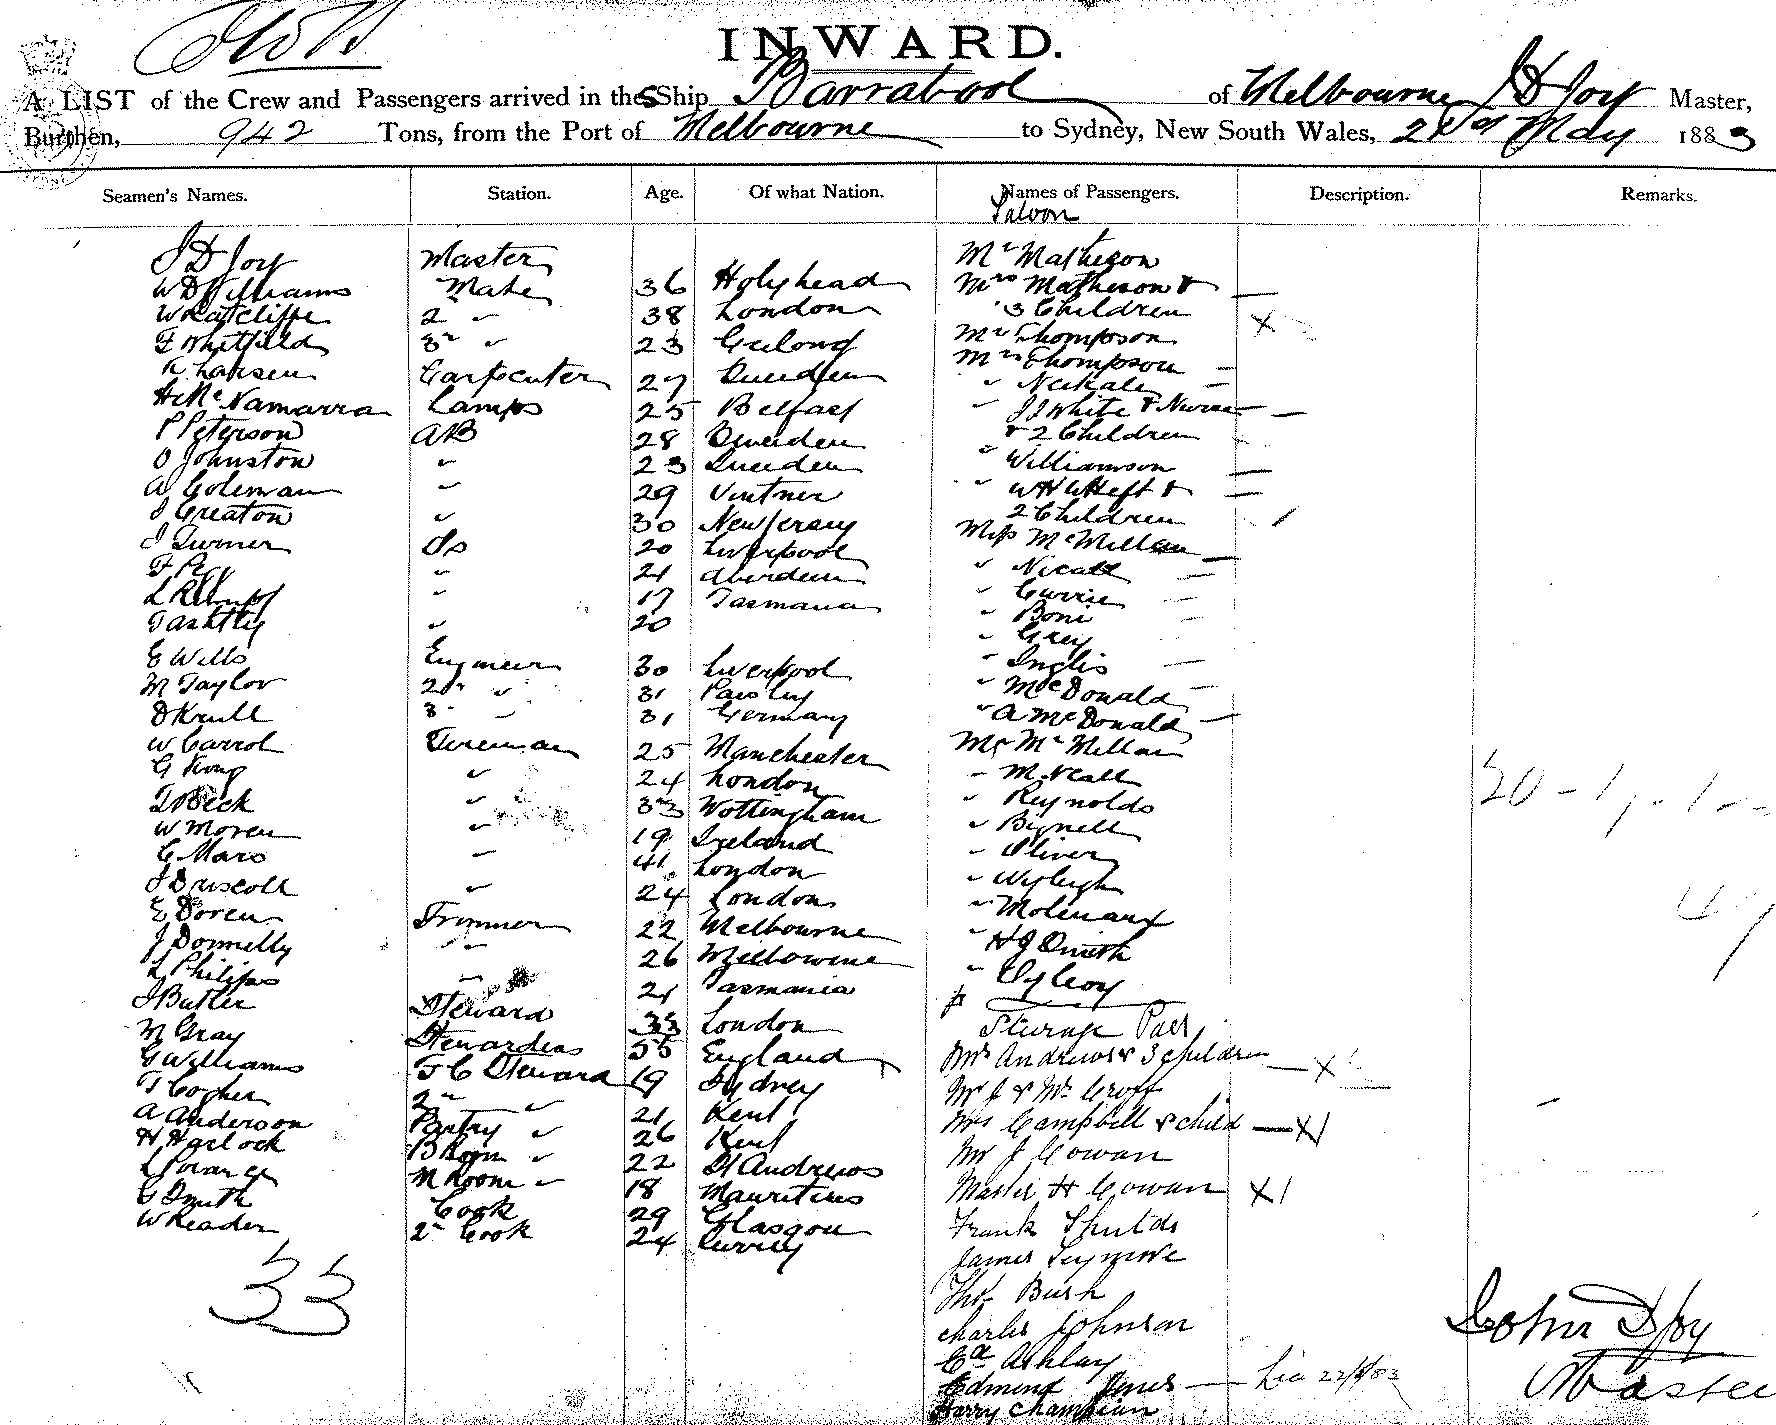 INWARD.
A LIST of the Crew and Passengers arrived in the S Ship Barrabool of Melbourne J D Joy Master,
Burthen, 942 Tons, from the Port of Melbourne to Sydney, New South Wales, May 1883
Seamen's Names. Station. Age. Of what Nation. Names of Passengers. Description. Remarks.
Saloon
J D Joy Master Mr Matheson
W D Williams Mate 36 Holyhead Mrs Matheson &
W Ratcliffe 2 " 38 London 3 Children X
F Whitfield 3 " 23 Geelong Mr Thompson
K Larsen Carpenter 27 Sweden Mrs Thompson
H McNamarra Lamps 25 Belfast "
P Peterson AB 28 Sweden " J J White & Nurse
O Johnston " 23 Sweden & 2 Children
A Coleman " 29 " Williamson
J Creaton " 30 New Jersey " W H &
J Turner Do 20 Liverpool 2 Children
F " 21 Aberdeen Miss McMillan
L " 17 Tasmania "
" 20 " Currie
" Grey
E Wills Engineer 30 Liverpool " Inglis
M Taylor 2 " 31 Paisley " McDonald
D Krull 3 " 31 Germany " A McDonald
W Carrol Fireman 25 Manchester Mr McMillan
G King " 24 London "
T Beck " 33 Nottingham " Reynolds
W Moren " 19 Ireland " Bignell
C Mars " 41 London " Oliver
J Driscoll " 24 London "
E Doren Trimmer 22 Melbourne "
J Donnelly " 26 Melbourne " H J Smith
L Philips " 21 Tasmania "
J Butler Steward 33 London Steerage Pass
M Gray Stewardess 55 England Mrs Andrews & 3 children X
G Williams F C Steward 19 Sydney Mr J & Mrs Croft
T Copher 2 " 21 Kent Mrs Campbell & child X
A Anderson Pantry " 26 Kent Mr J Cowan
H Harlock B Room " 22 St Andrews Master H Cowan X
M Room " 18 Mauritius Frank Shields
G Smith Cook 29 Glasgow James Seymore
W Reader 2 Cook 24 Surrey Thos Bush
33
Charles Johnson
Ed Ashlay
Edmund Jones
Harry Champion
John D Joy
Master